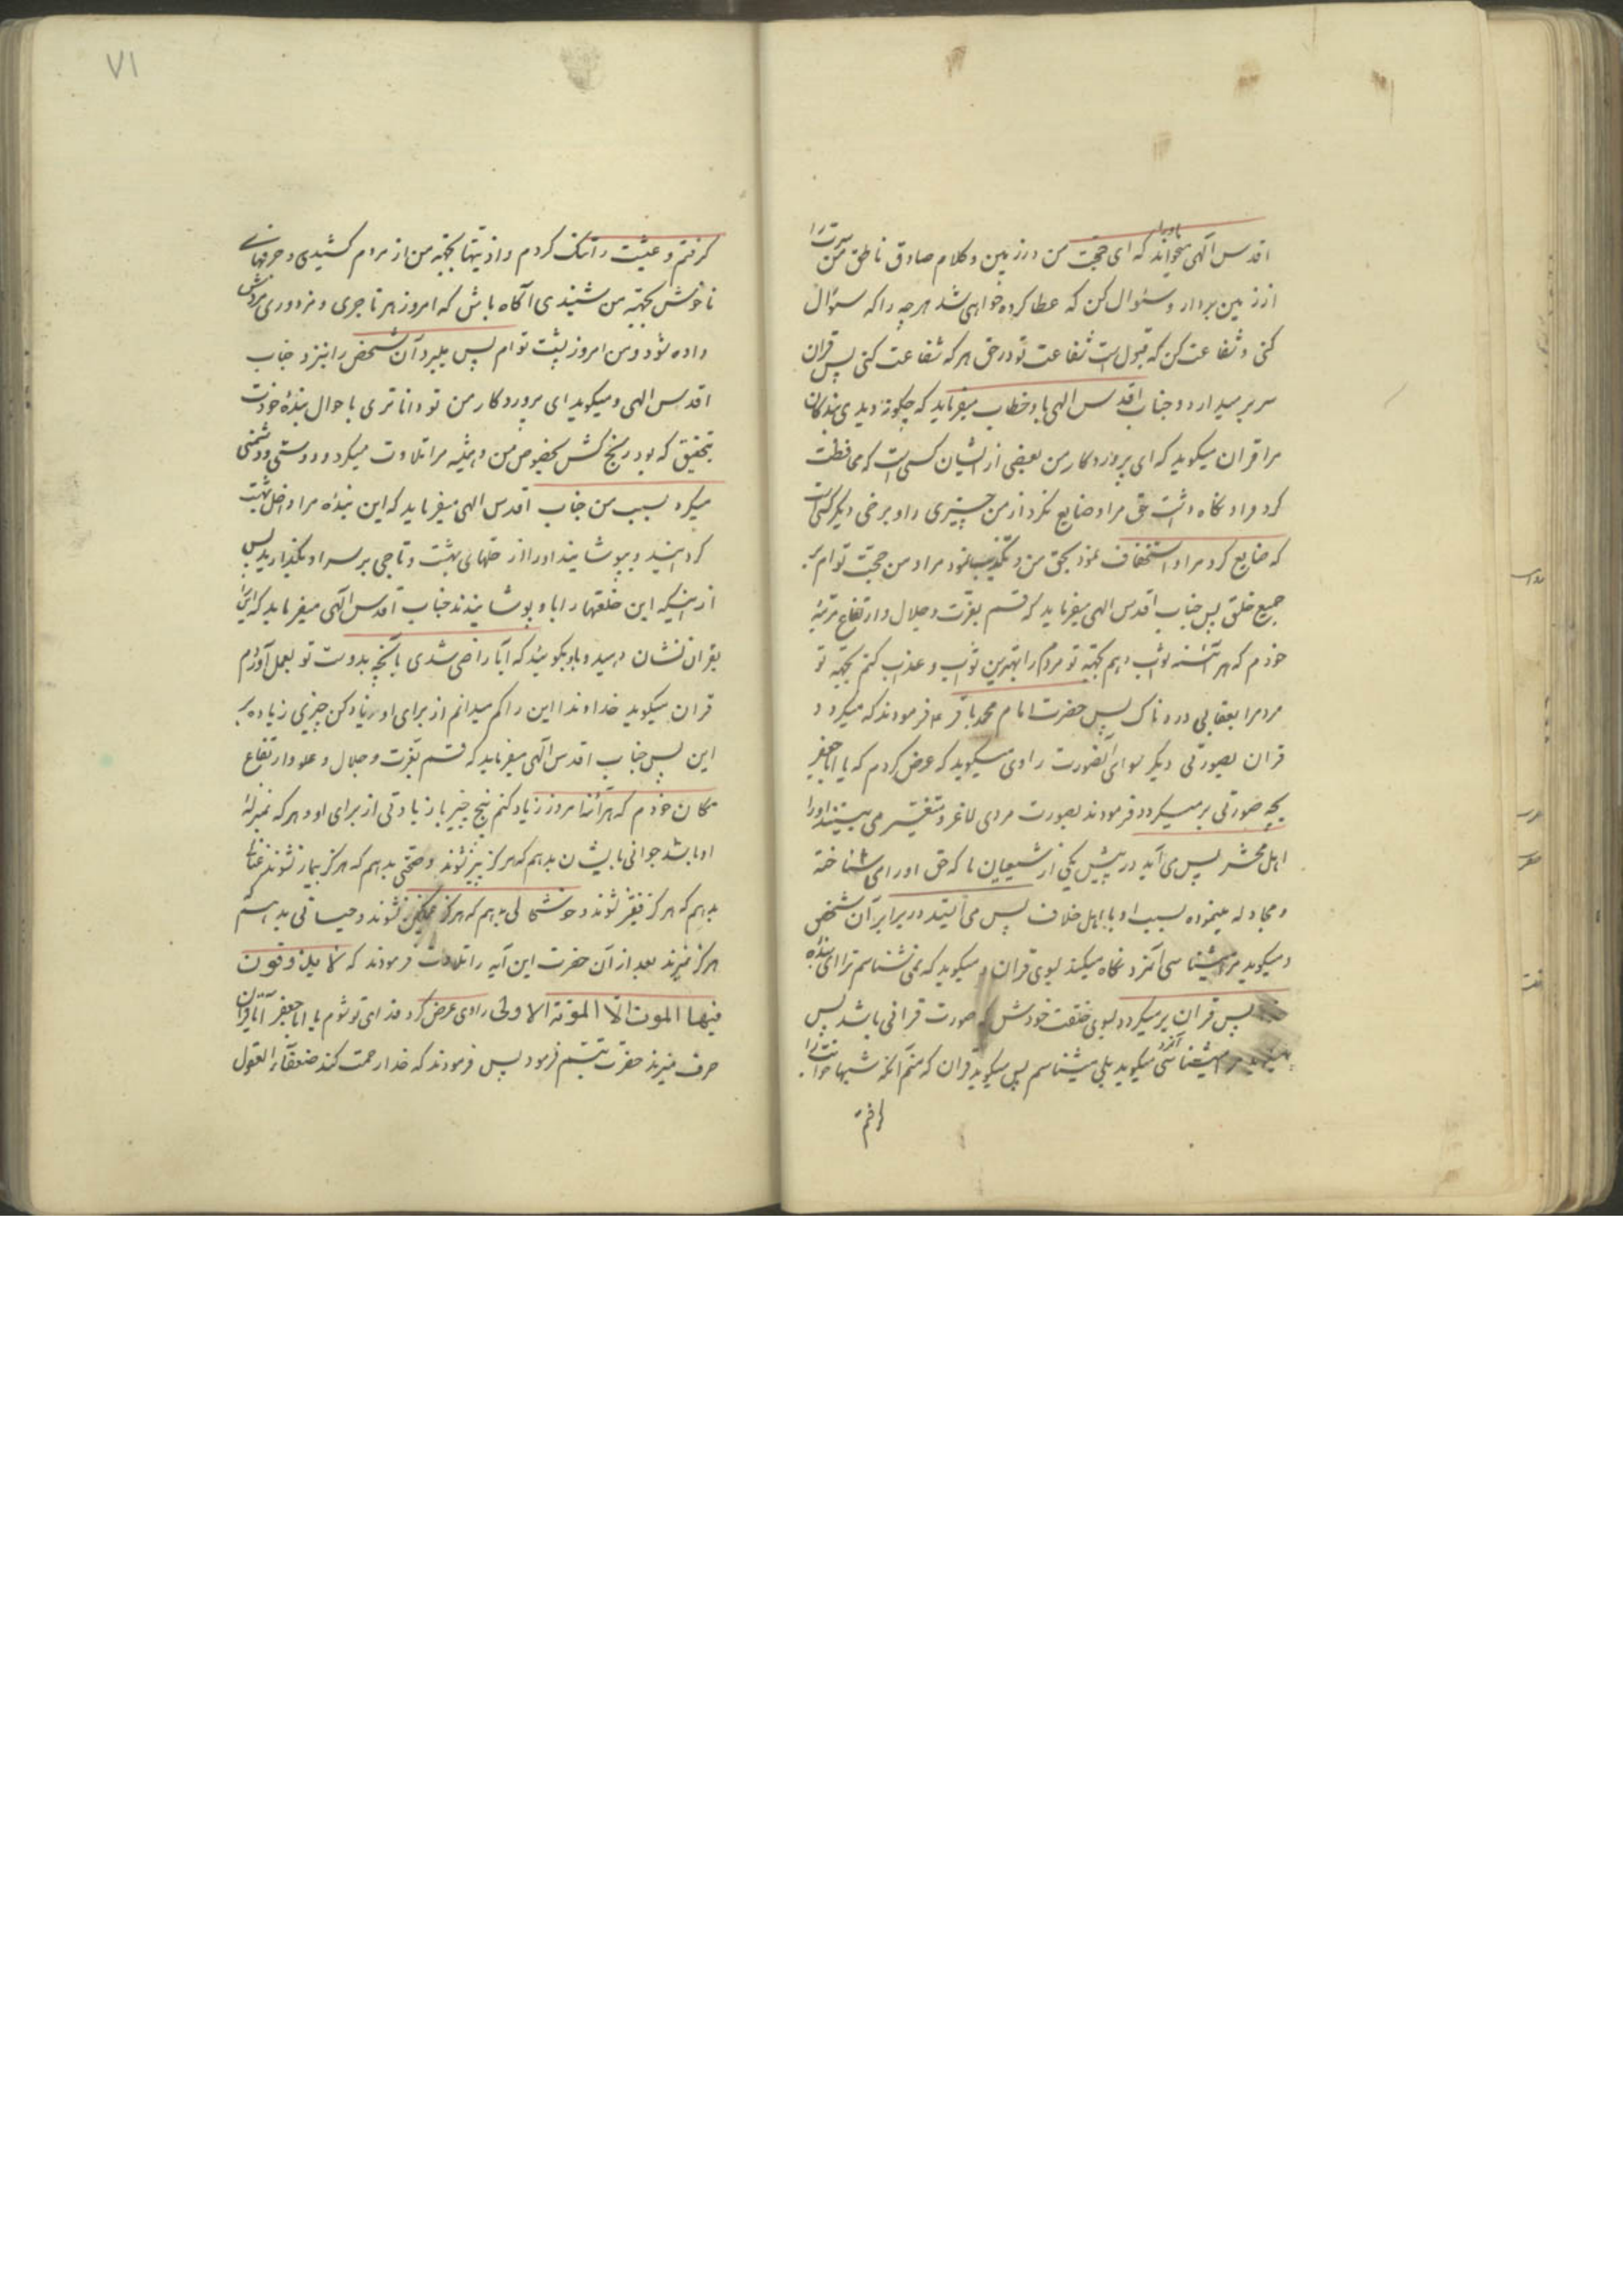 اقدس الهی میخواند او را که ای حجت من در زمین و کلام صادق ناطق من سرت را
از زمین بردار و سئوال کن که عطا کرده خواهی شد هر چه را که سئوال
کنی و شفاعت کن که قبول است شفاعت تو در حق هر که شفاعت کنی پس قران
سر بر میدارد و جناب اقدس الهی باو خطاب میفرماید که چکونه دیدی بندکان
مرا قران میکوید که ای پروردکار من بعضی از ایشان کسی است که محافظت
کرد مرا و نکاه داشت حق مرا و ضایع نکرد از من چیزی را و برخی دیکر کسی است
که ضایع کرد مرا و استخفاف نمود بحق من و تکذیب نمود مرا و من حجت توام بر
جمیع خلق پس جناب اقدس الهی میفرماید که قسم بعزت و جلال و ارتفاع مرتبهٔ
خودم که هر آئینه ثواب دهم بجهه تو مردم را بهترین ثواب و عذاب کنم بجهه تو
مردمرا بعقابی دردناک پس حضرت امام محمد باقر ع فرمودند که میکردد
قران بصورتی دیکر سوای آنصورت راوی میکوید که عرض کردم که یا ابا جعفر
بچه صورتی بر میکردد فرمودند بصورت مردی لاغر و متغیر می بینند او را
اهل محشر پس می آید در پیش یکی از شیعیان ما که حق او را می شناخته
و مجادله مینموده بسبب او با اهل خلاف پس می ایستد در برابر آن شخص
و میکوید مرا میشناسی آنمرد نکاه میکند بسوی قران و میکوید که نمی شناسم ترا ای بندهٔ
پس قران بر میکردد بسوی خلقت خودش که صورت قرانی باشد پس
میکوید مرا میشناسی آنمرد میکوید بلی میشناسم پس میکوید قران که منم آنکه شبها خوابت را
کرفتم
۷۱
کرفتم و عیشت را تنک کردم و اذیتها بجهه من از مردم کشیدی و حرفهای
ناخوش بجهه من شنیدی آکاه باش که امروز هر تاجری و مزدوری مزدش
داده شود و من امروز پشت توام پس میبرد آن شخص را بنزد جناب
اقدس الهی و میکوید ای پروردکار من تو داناتری باحوال بندهٔ خودت
بتحقیق که بود رنج کش بخصوص من و همیشه مرا تلاوت میکرد و دوستی و دشمنی
میکرد بسبب من جناب اقدس الهی میفرماید که این بندهٔ مرا داخل بهشت
کردانید و بپوشانید او را از حلهای بهشت و تاجی بر سر او بکذارید پس
از اینکه این خلعتها را باو پوشانیدند جناب اقدس الهی میفرماید که او را
بقران نشان دهید و باو بکوئید که آیا راضی شدی بآنچه بدوست تو بعمل آوردم
قران میکوید خداوندا این را کم میدانم از برای او زیاد کن چیزی زیاده بر
این پس جناب اقدس الهی میفرماید که قسم بعزت و جلال و علو و ارتفاع
مکان خودم که هر آئنه امروز زیاد کنم پنج چیز با زیادتی از برای او و هر که بمنزلهٔ
او باشد جوانی بایشان بدهم که هرکز پیر نشوند و صحتی بدهم که هرکز بیمار نشوند و غنائی
بدهم که هرکز فقیر نشوند و خوشحالی بدهم که هرکز غمکین نشوند و حیاتی بدهم که
هرکز نمیرند بعد از آن حضرت این آیه را تلاوت فرمودند که لا یذوقون
فیها الموت الا الموتة الاولی راوی عرض کرد فدای تو شوم یا ابا جعفر آیا قران
حرف میزند حضرت تبسم فرمود پس فرمودند که خدا رحمت کند ضعفاء العقول